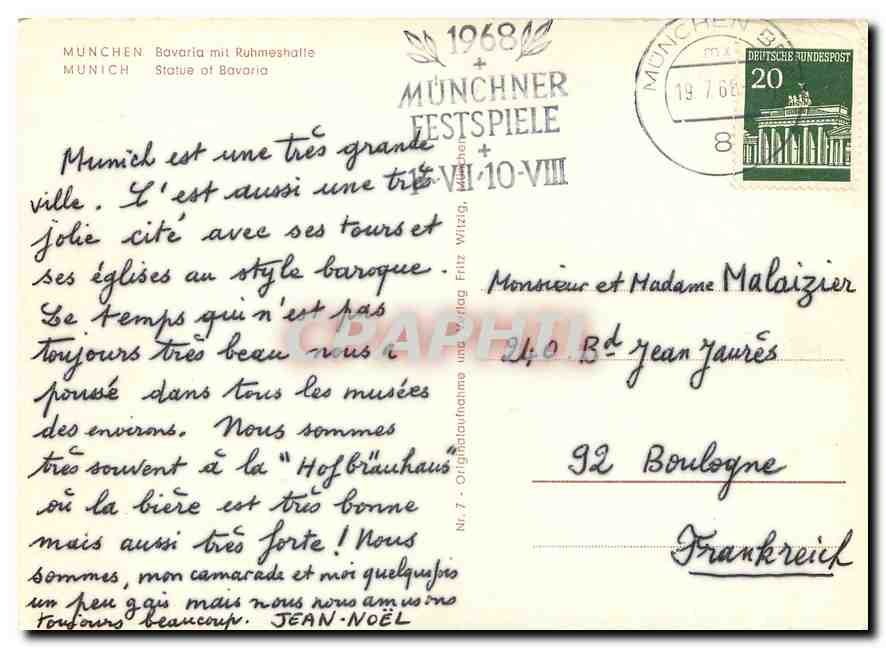 MUNCHEN Bavaria mit Ruhmeshalle
MUNICH Statue of Bavaria
1968
MÜNCHNER
FESTSPIELE
VII-10-VIII
MÜNCHEN
19.7.68
8
DEUTSCHE BUNDESPOST
20
Munich est une très grande
ville. C'est aussi une très
jolie cité avec ses tours et
ses églises au style baroque.
Le temps qui n'est pas
toujours très beau nous a
poussé dans tous les musées
des environs. Nous sommes
très souvent à la "Hofbräuhaus"
où la bière est très bonne
mais aussi très forte! Nous
sommes, mon camarade et moi quelquefois
un peu gais mais nous nous amusons
toujours beaucoup. JEAN-NOËL
Nr. 7 - Originalaufnahme und Verlag Fritz Witzig, München
Monsieur et Madame Malaizier
240 Bd Jean Jaurès
92 Boulogne
Frankreich
CPAPHIL